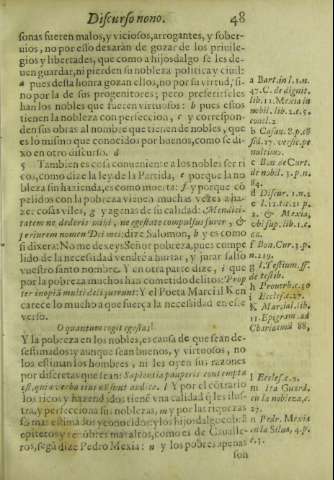 Discurso nono. 48
sonas fueren malos, y viciosos, arrogantes, y sober-
uios, no por esso dexarán de gozar de los priuile-
gios y libertades, que como a hijosdalgo se les de-
uen guardar, ni pierden su nobleza politica y ciuil:
a pues desta honra gozan ellos, no por su virtud, si-
no por la de sus progenitores; pero preferirseles
han los nobles que fueren virtuosos: b pues essos
tienen la nobleza con perfeccion, c y correspon-
den sus obras al nombre que tienen de nobles, que
es lo mismo que conocidos por buenos, como se di-
xo en otro discurso. d
Tambien es cosa conueniente a los nobles ser ri
cos, como dize la ley de la Partida, e porque la no
bleza sin hazienda, es como muerta: f y porque cõ
pelidos con la pobreza vienen muchas vezes a ha-
zer cosas viles, g y agenas de su calidad: Mendici-
tatem ne dederis mihi, ne egestate compulsus furer, &
periurem nomen Dei mei: dize Salomon, h y es como
si dixera: No me deys Señor pobreza, pues compe
lido de la necessidad vendré a hurtar, y jurar falso
vuestro santo nombre. Y en otra parte dize, i que
por la pobreza muchos han cometido delitos: Prop
ter inopiã multi deliquerunt: Y el Poeta Marcial K en
carece lo mucho a que fuerça la necessidad en este
verso.
O quantum cogit egestas!
Y la pobreza en los nobles, es causa de que sean de-
sestimados: y aunque sean buenos, y virtuosos, no
los estiman los hombres, ni les oyen sus razones
por discretas que sean: Sapientia pauperis contempta
est, & verba eius non sunt audita. l Y por el cõtrario
los ricos y hazendados tienẽ vna calidad q̃ les ilus-
tra, y perfecciona sus noblezas, m y por las riquezas
so mas estimados y conocidos: y los hijosdalgo cobrã
epitetos y renõbres mas altos, como es de Caualle-
ros, segũ dize Pedro Mexia: n y los pobres apenas
son
a Bart. in l. 1. n.
47. C. de dignit.
lib. 12. Mexia in
b Casan. 8. p. c8
c Bon. de Curt.
de nobil. 3. p. n.
84.
d Discur. 1. n. 2
2. & Mexia,
f Bon. Cur. 3. p.
n. 219.
de testib.
h Prouerb. c. 30
i Eccles. c. 27.
K Marcial. lib.
11. Epigram. ad
l Eccles. c. 9.
m Ita Guard.
en la nobleza, c.
27.
n Pedr. Mexia
en la Silua, 4. p.